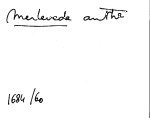 Merlevede anthr
1684/60